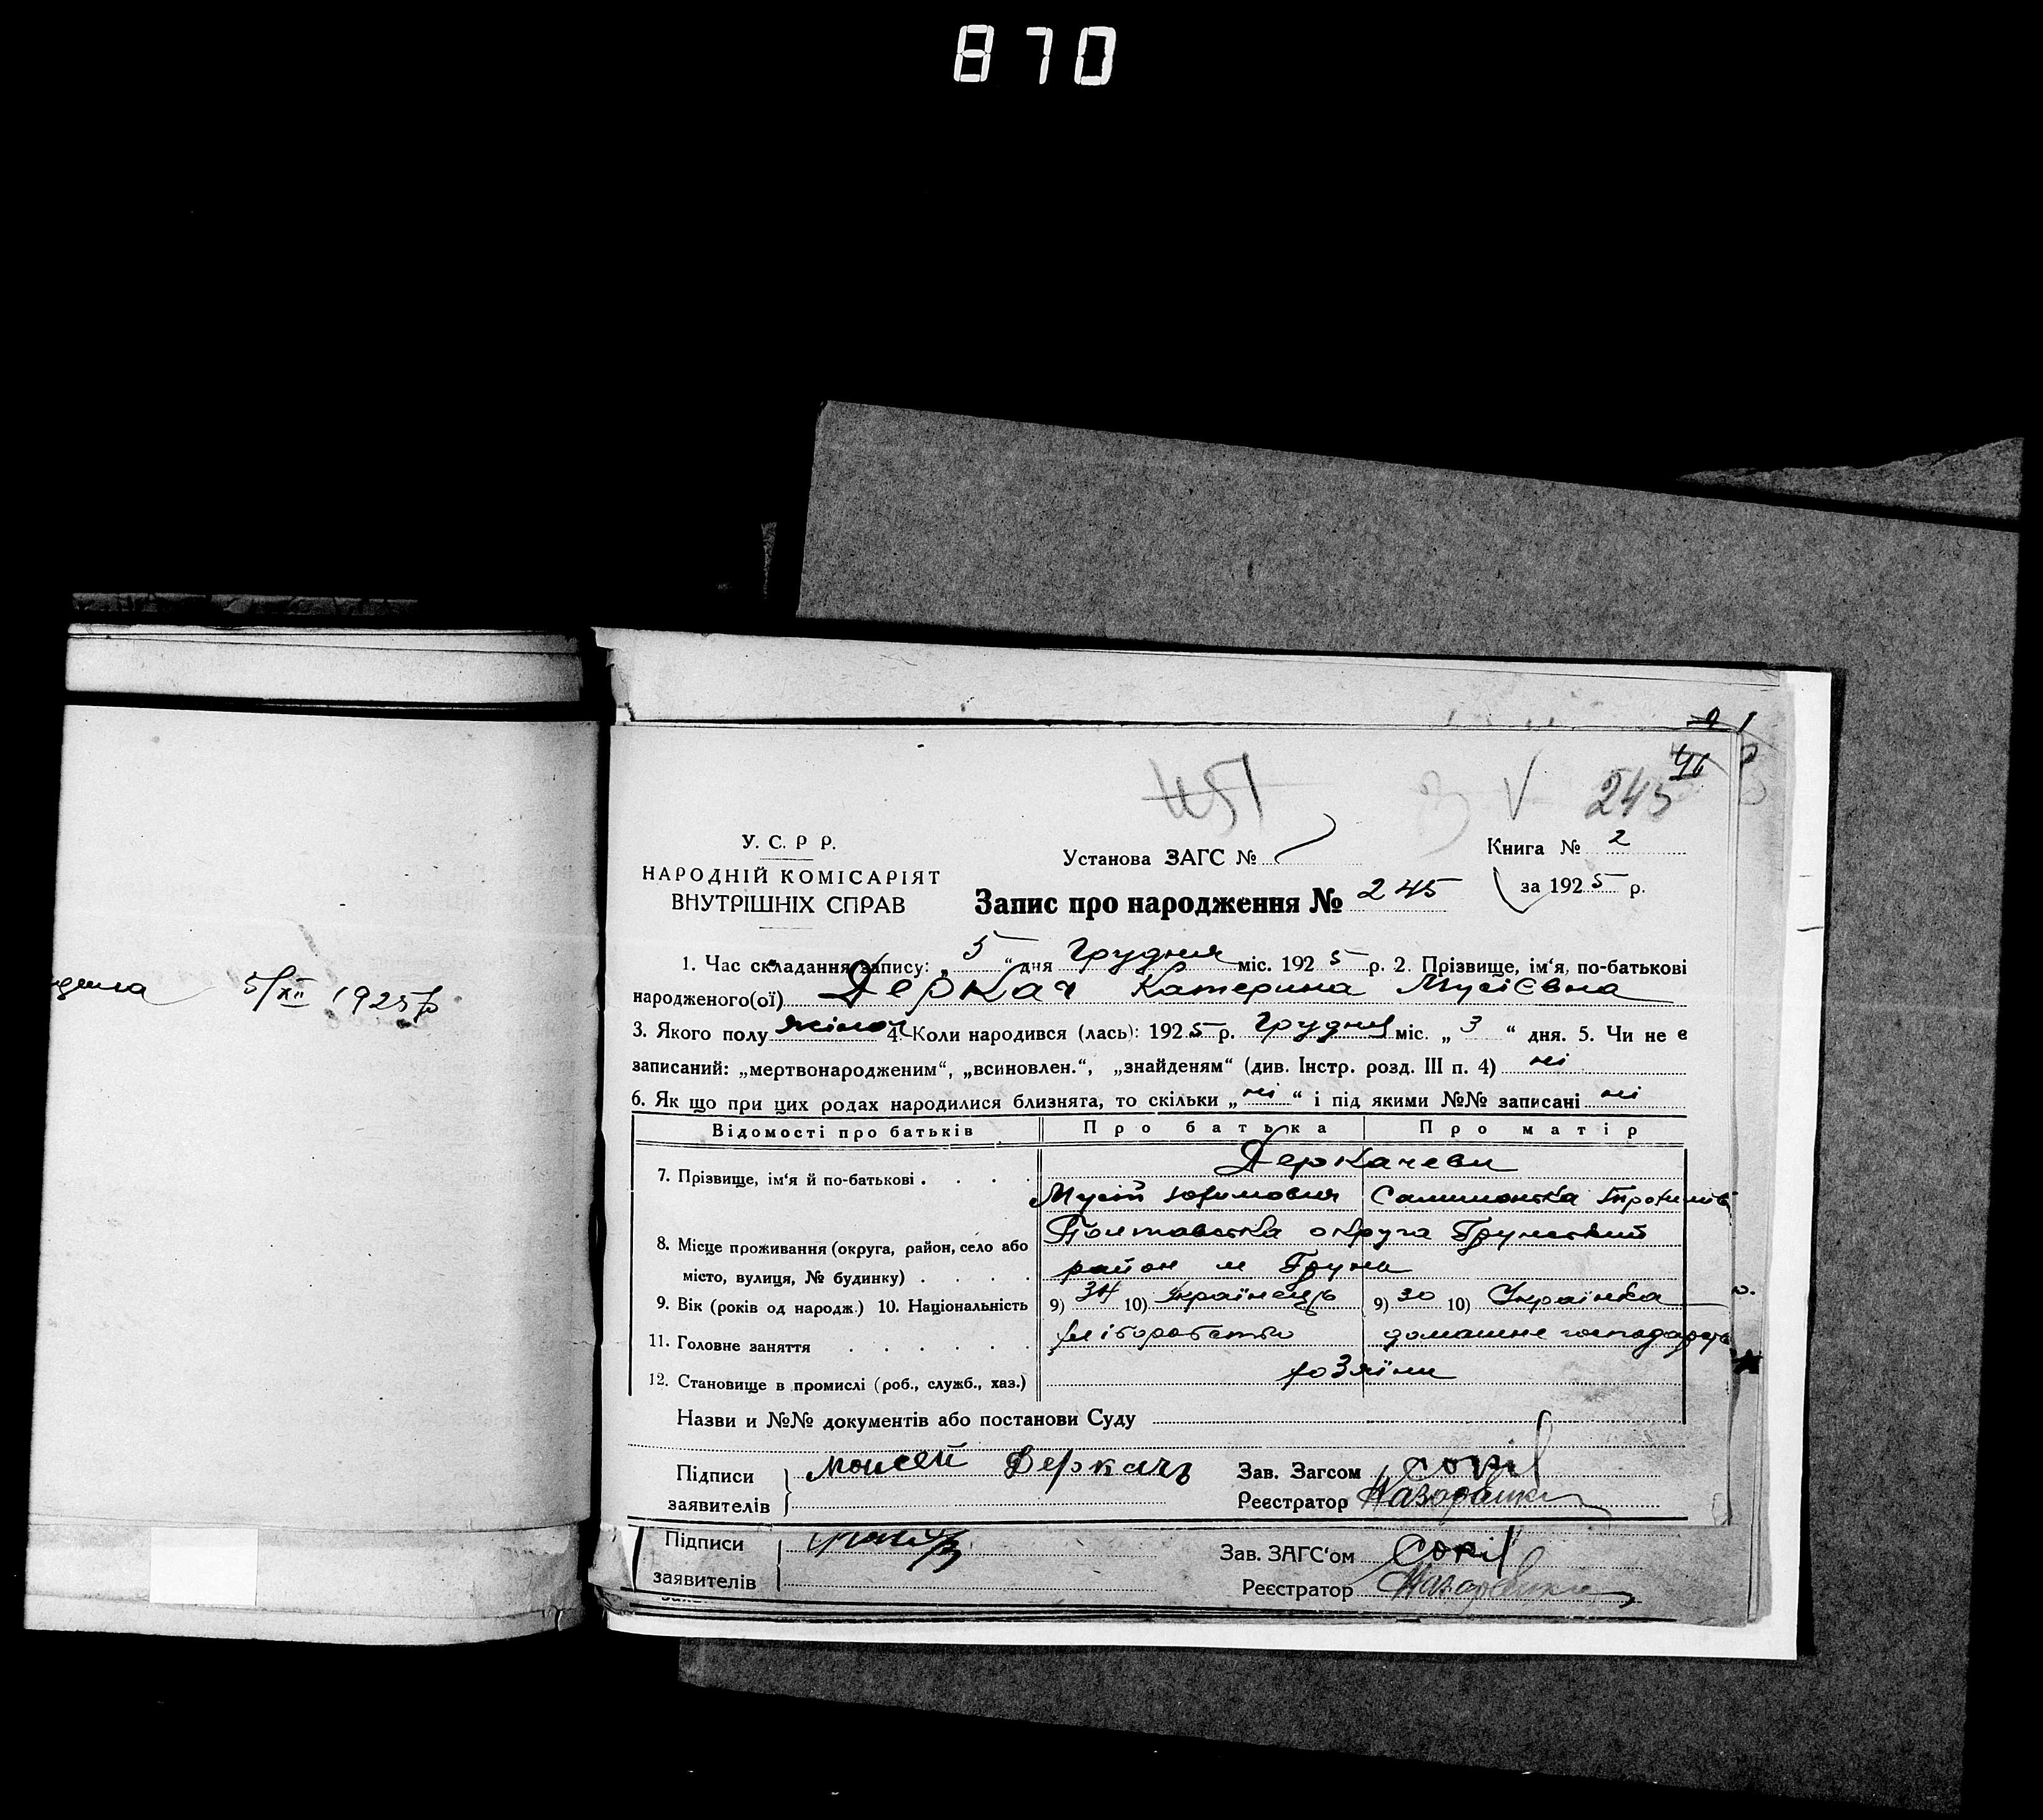 870
5/XII 1925 р
451
V
245
46
У. С. Р Р.
НАРОДНІЙ КОМІСАРІЯТ
ВНУТРІШНІХ СПРАВ
Установа ЗАГС №
Книга № 2
за 1925 р.
Запис про народження № 245
1. Час складання запису: „5“ дня Грудня міс. 1925 р. 2. Прізвище, ім'я, по-батькові
народженого(ої) Деркач Катерина Мусієвна
3. Якого полу жіноч 4. Коли народився (лась): 1925 р. Грудня міс. „3“ дня. 5. Чи не є
записаний: „мертвонародженим“, „всиновлен.“, „знайденям“ (див. Інстр. розд. III п. 4) ні
6. Як що при цих родах народилися близнята, то скільки „ні“ і під якими №№ записані ні
Відомості про батьків Про батька Про матір
7. Прізвище, ім'я й по-батькові Деркачеви
Мусій Юхимович
8. Місце проживання (округа, район, село або Полтавська округа Грунський
місто, вулиця, № будинку) район м Грунь
9. Вік (років од народж.) 10. Національність 9) 34 10) Українець 9) 30 10) Українка
11. Головне заняття хліборобство домашне господарств
12. Становище в промислі (роб., служб., хаз.) хозяїни
Назви и №№ документів або постанови Суду
Підписи Моисей Деркачъ Зав. Загсом
заявителів Реєстратор
Підписи Зав. ЗАГС'ом
заявителів Реєстратор